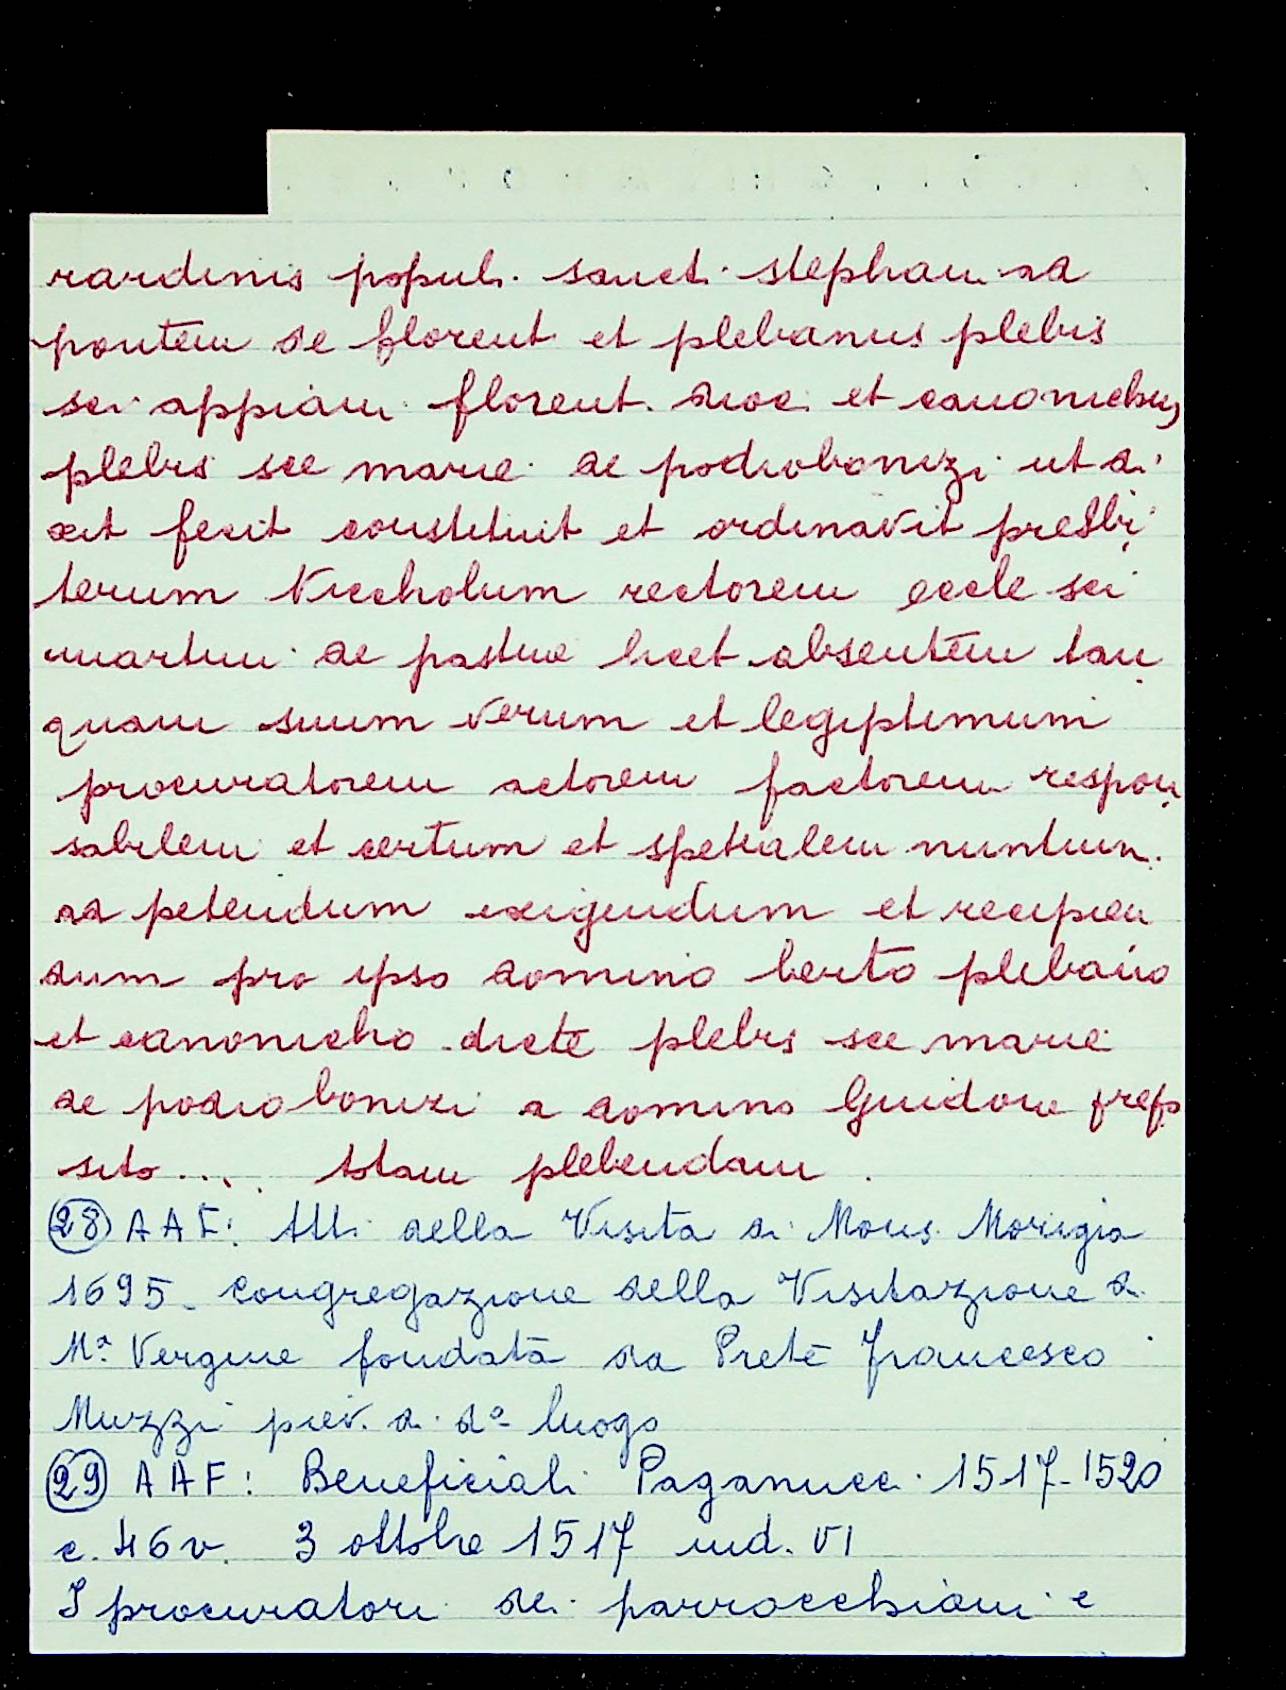 rardinis populi sancti stephani ad
pontem de florent. et plebanus plebis
sci appiani florent. dioc. et canonichus
plebis sce marie de podiobonizi ut di
xit fecit constituit et ordinavit presbi
terum Niccholum rectorem eccle sci
martini de pastine licet absentem tan
quam suum verum et legiptimum
procuratorem actorem factorem respon
sabilem et certum et spetialem nuntium.
ad petendum exigendum et recipien
dum pro ipso domino berto plebano
et canonicho dicte plebis sce marie
de podiobonizi a domino Guidone prepo
sito .... totam plebendam.
(28) AAF: Atti della Visita di Mons. Morigia
1695. Congregazione della Visitazione di
Mª Vergine fondata da Prete Francesco
Muzzi piev. di dº luogo
(29) AAF: Beneficiali Paganucci 1517-1520
c. 46v. 3 ottobre 1517 ind. VI
I procuratori dei parrocchiani e